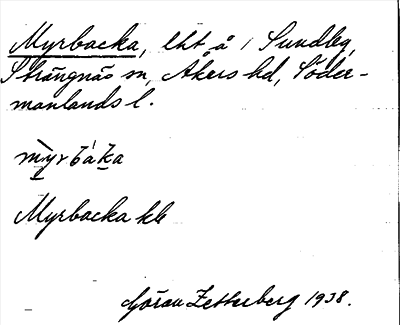 Myrbacka, lht å / Sundby,
Strängnäs sn, Åkers hd, Söder-
manlands l.
myrbaka
Myrbacka kb
Göran Zetterberg 1938.